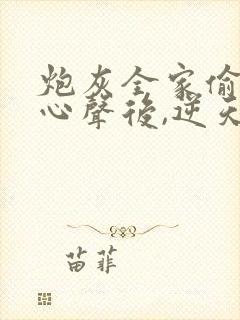 炮灰全家偷
心聲後,逆天
苗菲